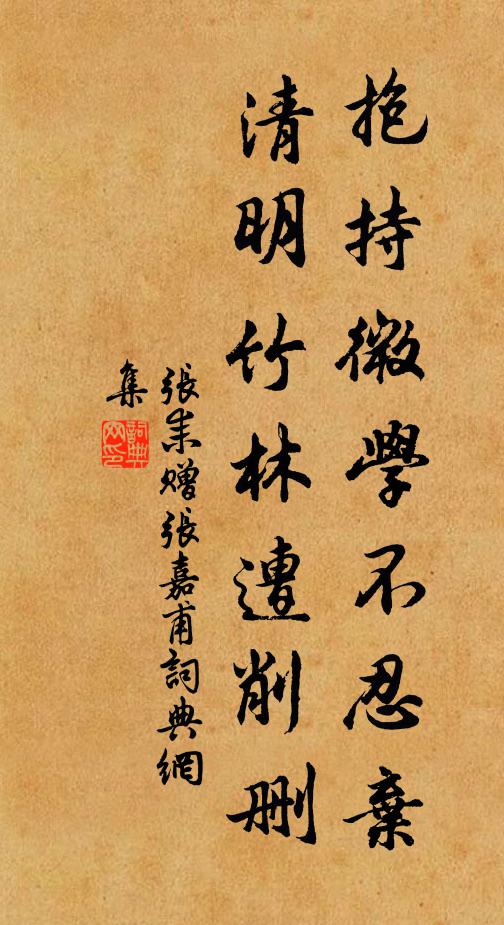 抱持微學不忍棄
清明竹林遭削刪
張耒贈張嘉甫詞典網
集
詞典
网印